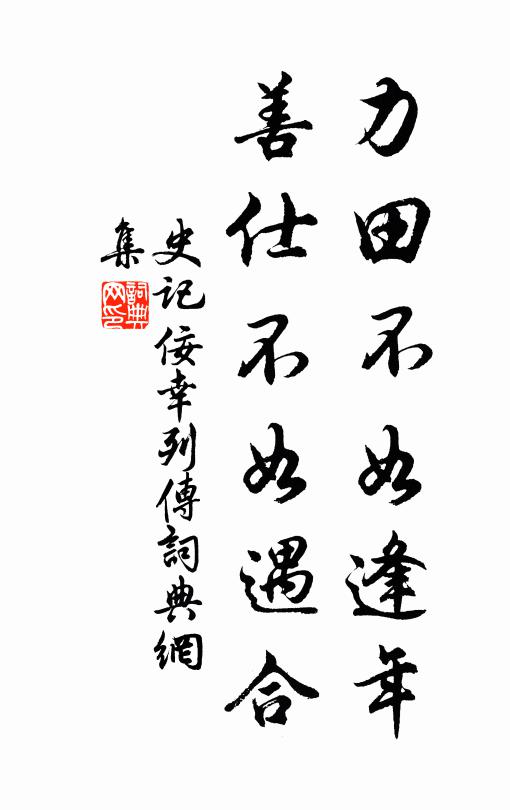 力田不如逢年
善仕不如遇合
史記佞幸列傳詞典網
集
詞典
网印